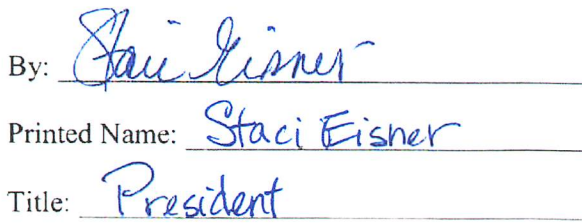 By: Staci Eisner
Printed Name: Staci Eisner
Title: President